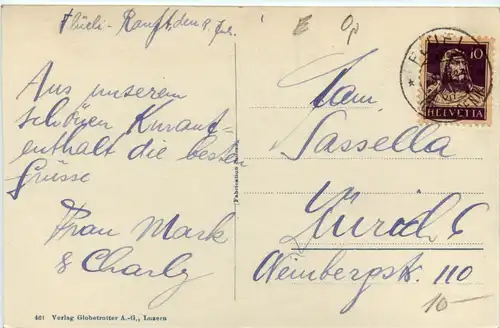 Flüeli-Ranft, den 8. Juli
Aus unserem
schönen Kurauf=
enthalt die besten
Grüsse
Frau Mark
& Charly
Fam.
Sassella
Zürich 6
Weinbergstr. 110
10
HELVETIA
10-
461 Verlag Globetrotter A.-G., Luzern